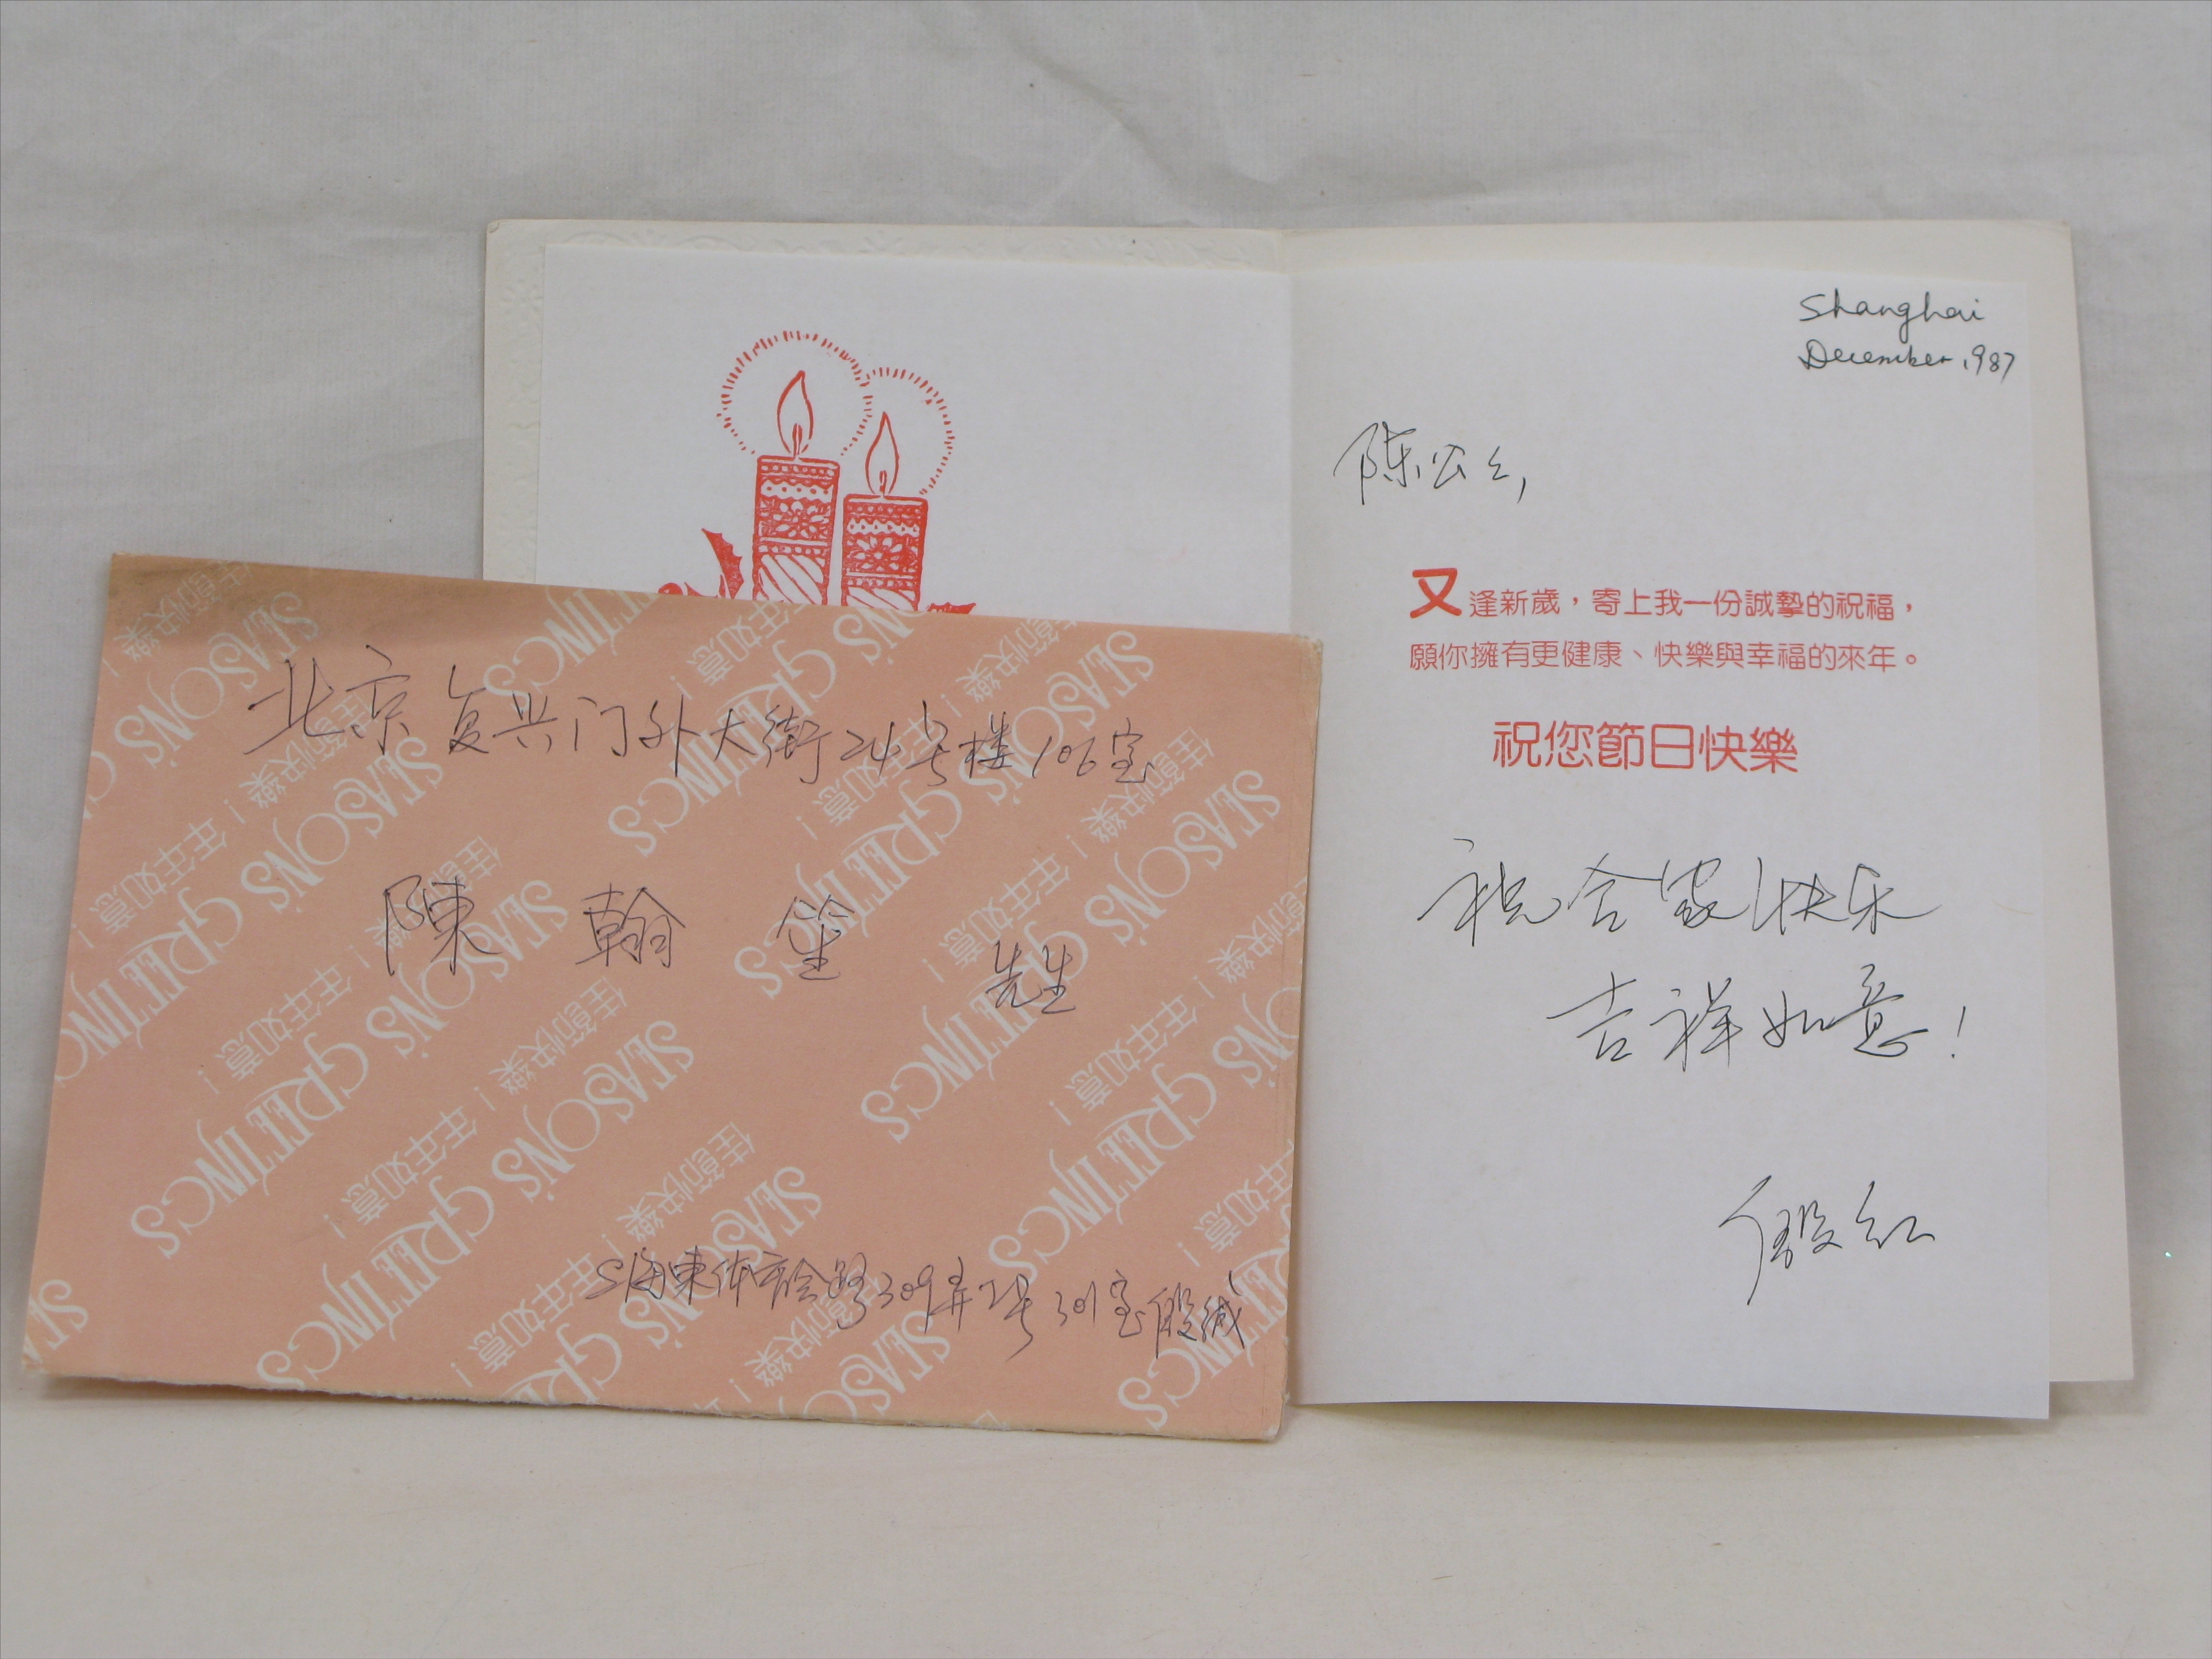 北京复兴门外大街24号楼106室
陳翰笙 先生
上海東体育会路309弄2号301室 段缄
Shanghai
December, 1987
陈公公,
又逢新歲，寄上我一份誠摯的祝福，
願你擁有更健康、快樂與幸福的來年。
祝您節日快樂
祝合家快乐
吉祥如意!
SEASONS GREETINGS
佳節快樂！年年如意！